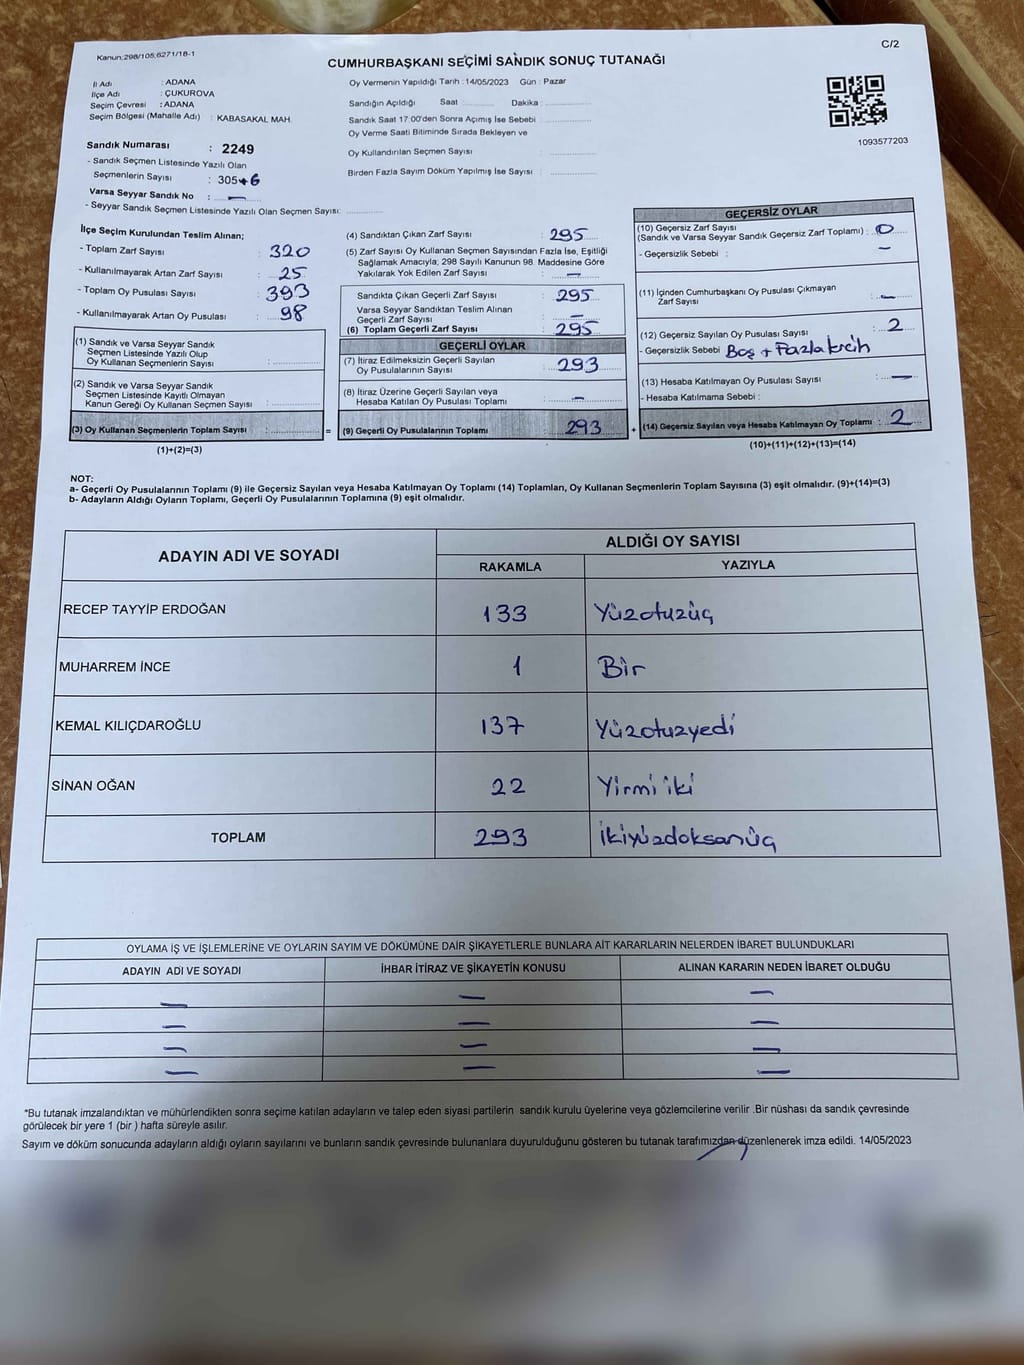 Kanun;298/105;6271/18-1
C/2
CUMHURBAŞKANI SEÇİMİ SANDIK SONUÇ TUTANAĞI
İl Adı : ADANA
İlçe Adı : ÇUKUROVA
Seçim Çevresi : ADANA
Seçim Bölgesi (Mahalle Adı) : KABASAKAL MAH.
Sandık Numarası : 2249
- Sandık Seçmen Listesinde Yazılı Olan
Seçmenlerin Sayısı : 305+6
Varsa Seyyar Sandık No : —
- Seyyar Sandık Seçmen Listesinde Yazılı Olan Seçmen Sayısı: ..............
Oy Vermenin Yapıldığı Tarih : 14/05/2023 Gün : Pazar
Sandığın Açıldığı Saat ........... Dakika : ..............
Sandık Saat 17:00'den Sonra Açımış İse Sebebi : ..............
Oy Verme Saati Bitiminde Sırada Bekleyen ve
Oy Kullandırılan Seçmen Sayısı : ..............
Birden Fazla Sayım Döküm Yapılmış İse Sayısı : ..............
1093577203
İlçe Seçim Kurulundan Teslim Alınan;
- Toplam Zarf Sayısı : 320
- Kullanılmayarak Artan Zarf Sayısı : 25
- Toplam Oy Pusulası Sayısı : 393
- Kullanılmayarak Artan Oy Pusulası : 98
(1) Sandık ve Varsa Seyyar Sandık
Seçmen Listesinde Yazılı Olup
Oy Kullanan Seçmenlerin Sayısı : ..............
(2) Sandık ve Varsa Seyyar Sandık
Seçmen Listesinde Kayıtlı Olmayan
Kanun Gereği Oy Kullanan Seçmen Sayısı : ..............
(3) Oy Kullanan Seçmenlerin Toplam Sayısı : .............. =
(1)+(2)=(3)
(4) Sandıktan Çıkan Zarf Sayısı : 295
(5) Zarf Sayısı Oy Kullanan Seçmen Sayısından Fazla İse, Eşitliği
Sağlamak Amacıyla; 298 Sayılı Kanunun 98. Maddesine Göre
Yakılarak Yok Edilen Zarf Sayısı : —
Sandıkta Çıkan Geçerli Zarf Sayısı : 295
Varsa Seyyar Sandıktan Teslim Alınan
Geçerli Zarf Sayısı : —
(6) Toplam Geçerli Zarf Sayısı : 295
GEÇERLİ OYLAR
(7) İtiraz Edilmeksizin Geçerli Sayılan
Oy Pusulalarının Sayısı : 293
(8) İtiraz Üzerine Geçerli Sayılan veya
Hesaba Katılan Oy Pusulası Toplamı : —
(9) Geçerli Oy Pusulalarının Toplamı : 293 +
GEÇERSİZ OYLAR
(10) Geçersiz Zarf Sayısı
(Sandık ve Varsa Seyyar Sandık Geçersiz Zarf Toplamı) : 0
- Geçersizlik Sebebi : —
(11) İçinden Cumhurbaşkanı Oy Pusulası Çıkmayan
Zarf Sayısı : —
(12) Geçersiz Sayılan Oy Pusulası Sayısı : 2
- Geçersizlik Sebebi Boş + Fazla
(13) Hesaba Katılmayan Oy Pusulası Sayısı : —
- Hesaba Katılmama Sebebi :
(14) Geçersiz Sayılan veya Hesaba Katılmayan Oy Toplamı : 2
(10)+(11)+(12)+(13)=(14)
NOT:
a- Geçerli Oy Pusulalarının Toplamı (9) ile Geçersiz Sayılan veya Hesaba Katılmayan Oy Toplamı (14) Toplamları, Oy Kullanan Seçmenlerin Toplam Sayısına (3) eşit olmalıdır. (9)+(14)=(3)
b- Adayların Aldığı Oyların Toplamı, Geçerli Oy Pusulalarının Toplamına (9) eşit olmalıdır.
ADAYIN ADI VE SOYADI
ALDIĞI OY SAYISI
RAKAMLA YAZIYLA
RECEP TAYYİP ERDOĞAN 133 Yüzotuzüç
MUHARREM İNCE 1 Bir
KEMAL KILIÇDAROĞLU 137 Yüzotuzyedi
SİNAN OĞAN 22 Yirmi iki
TOPLAM 293 İkiyüzdoksanüç
OYLAMA İŞ VE İŞLEMLERİNE VE OYLARIN SAYIM VE DÖKÜMÜNE DAİR ŞİKAYETLERLE BUNLARA AİT KARARLARIN NELERDEN İBARET BULUNDUKLARI
ADAYIN ADI VE SOYADI İHBAR İTİRAZ VE ŞİKAYETİN KONUSU ALINAN KARARIN NEDEN İBARET OLDUĞU
— — —
— — —
— — —
— — —
*Bu tutanak imzalandıktan ve mühürlendikten sonra seçime katılan adayların ve talep eden siyasi partilerin sandık kurulu üyelerine veya gözlemcilerine verilir .Bir nüshası da sandık çevresinde
görülecek bir yere 1 (bir ) hafta süreyle asılır.
Sayım ve döküm sonucunda adayların aldığı oyların sayılarını ve bunların sandık çevresinde bulunanlara duyurulduğunu gösteren bu tutanak tarafımızdan düzenlenerek imza edildi. 14/05/2023